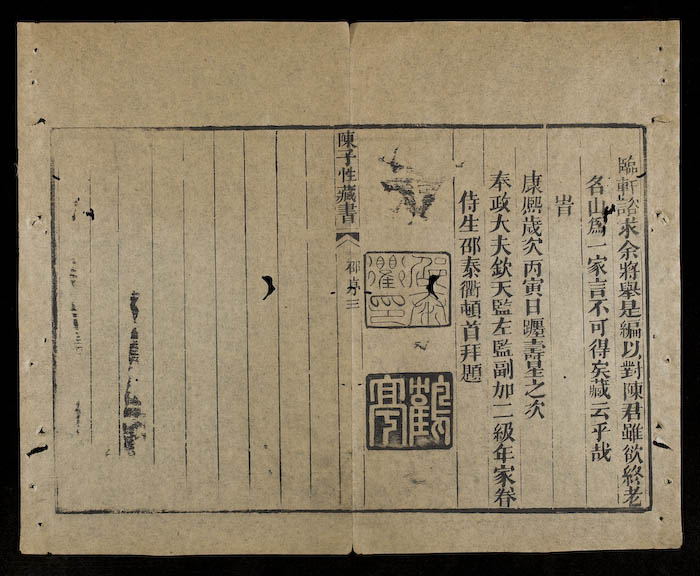 臨軒諮求余將舉是編以對陳君雖欲終老
名山爲一家言不可得矣藏云乎哉
旹
康熙歲次丙寅日躔壽星之次
奉政大夫欽天監左監副加二級年家眷
侍生邵泰衢頓首拜題
鶴亭
陳子性藏書
邵序
三